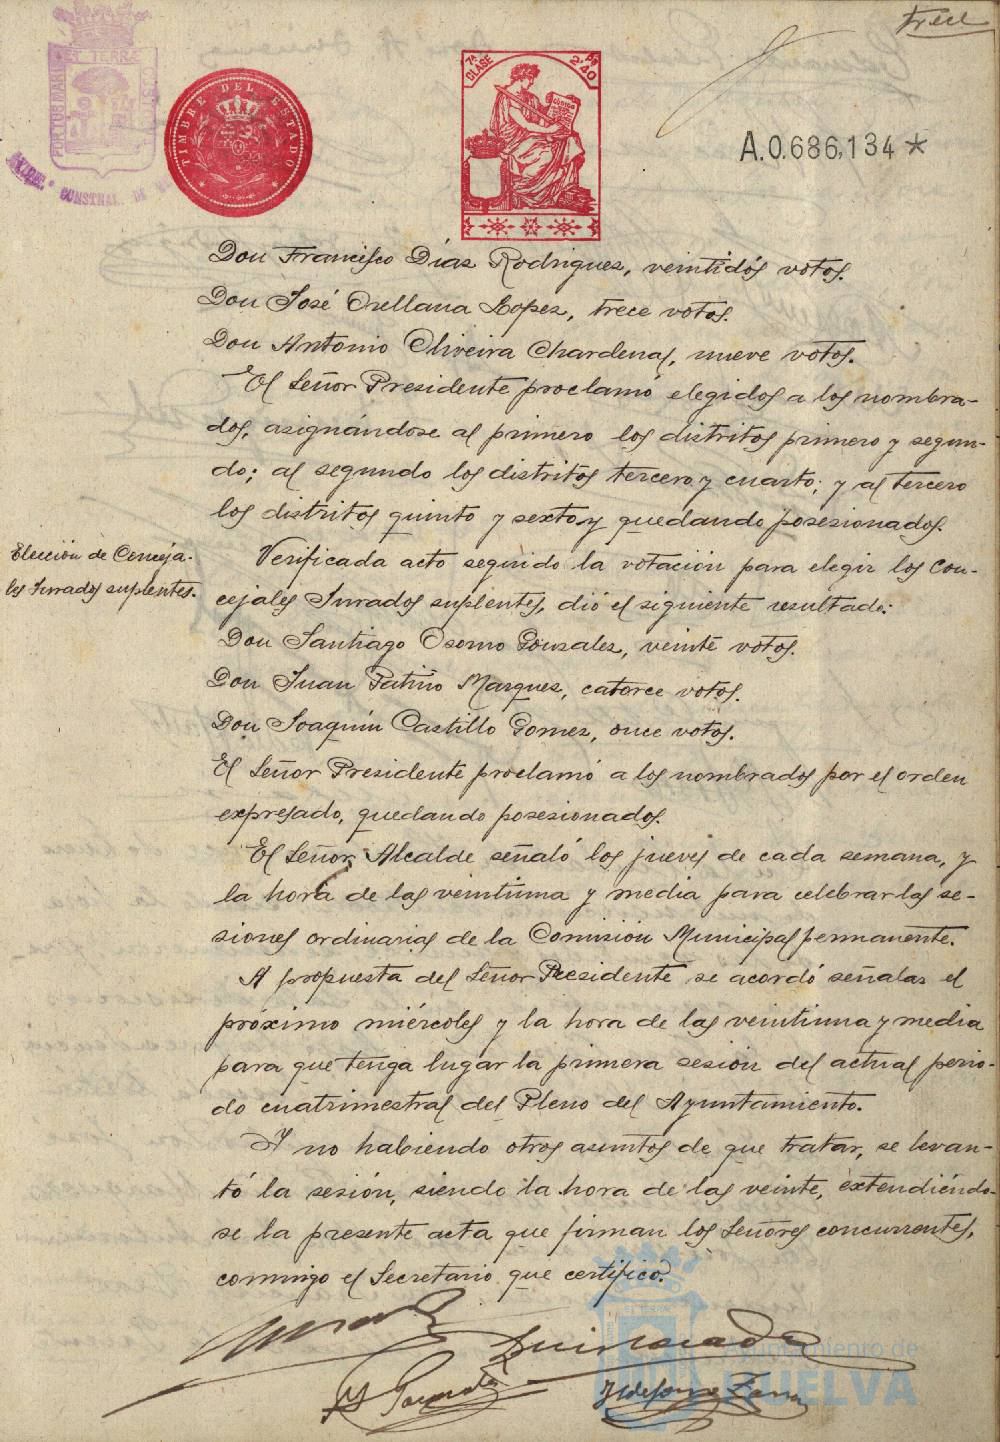 trece
PORTUS MARIS ET TERRÆ CUSTODIA
CONSTNAL. DE
TIMBRE DEL ESTADO
7ª CLASE
2'40
A.0.686,134*
Don Francisco Díaz Rodriguez, veintidós votos.
Don José Orellana Lopez, trece votos.
Don Antonio Oliveira Chardenal, nueve votos.
El Señor Presidente proclamó elegidos a los nombra-
dos, asignándose al primero los distritos primero y segun-
do; al segundo los distritos tercero y cuarto; y al tercero
los distritos quinto y sexto y quedando posesionados.
Elección de Conceja-
les Jurados suplentes.
Verificada acto seguido la votación para elegir los Con-
cejales Jurados suplentes, dió el siguiente resultado:
Don Santiago Osorno Gonzalez, veinte votos.
Don Juan Patiño Marquez, catorce votos.
Don Joaquín Castillo Gomez, once votos.
El Señor Presidente proclamó a los nombrados por el orden
expresado, quedando posesionados.
El Señor Alcalde señaló los jueves de cada semana, y
la hora de las veintiuna y media para celebrar las se-
siones ordinarias de la Comisión Municipal permanente.
A propuesta del Señor Presidente se acordó señalar el
próximo miércoles y la hora de las veintiuna y media
para que tenga lugar la primera sesión del actual perio-
do cuatrimestral del Pleno del Ayuntamiento.
Y no habiendo otros asuntos de que tratar, se levan-
tó la sesión, siendo la hora de las veinte, extendiéndo-
se la presente acta que firman los Señores concurrentes,
conmigo el Secretario que certifico.
Ayuntamiento de
HUELVA